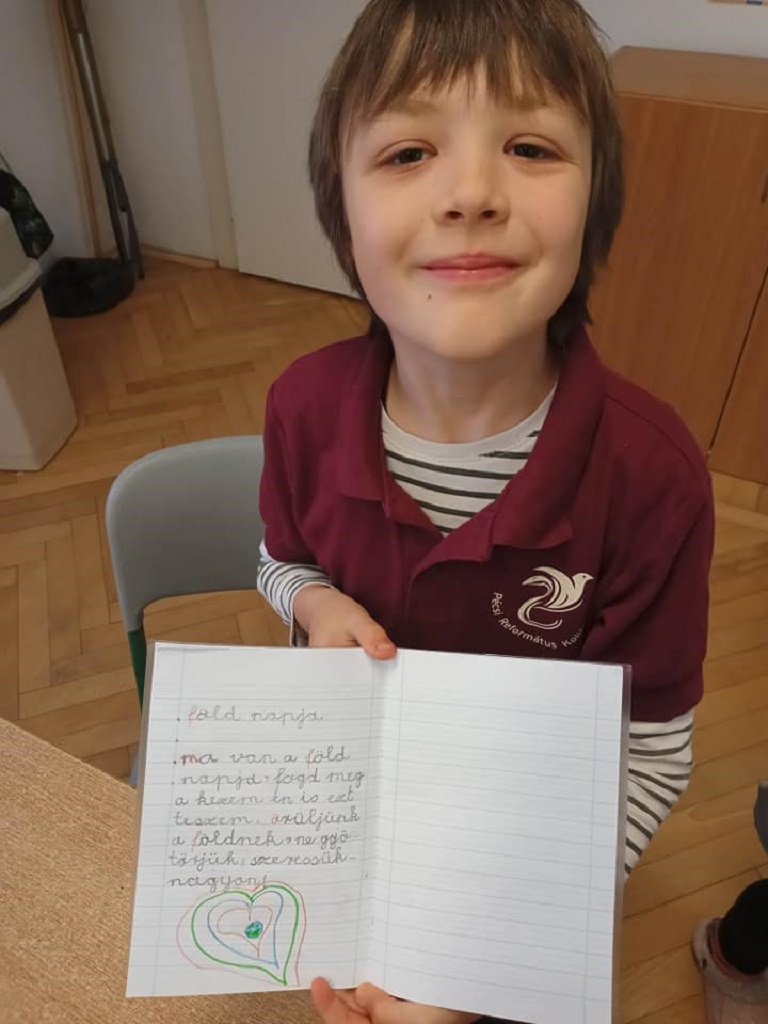 Pécsi Református Koll
föld napja
ma van a föld
napja, fogd meg
a kezem én is ezt
teszem, örüljünk
a földnek, ne gyö-
törjük, szeressük
nagyon!